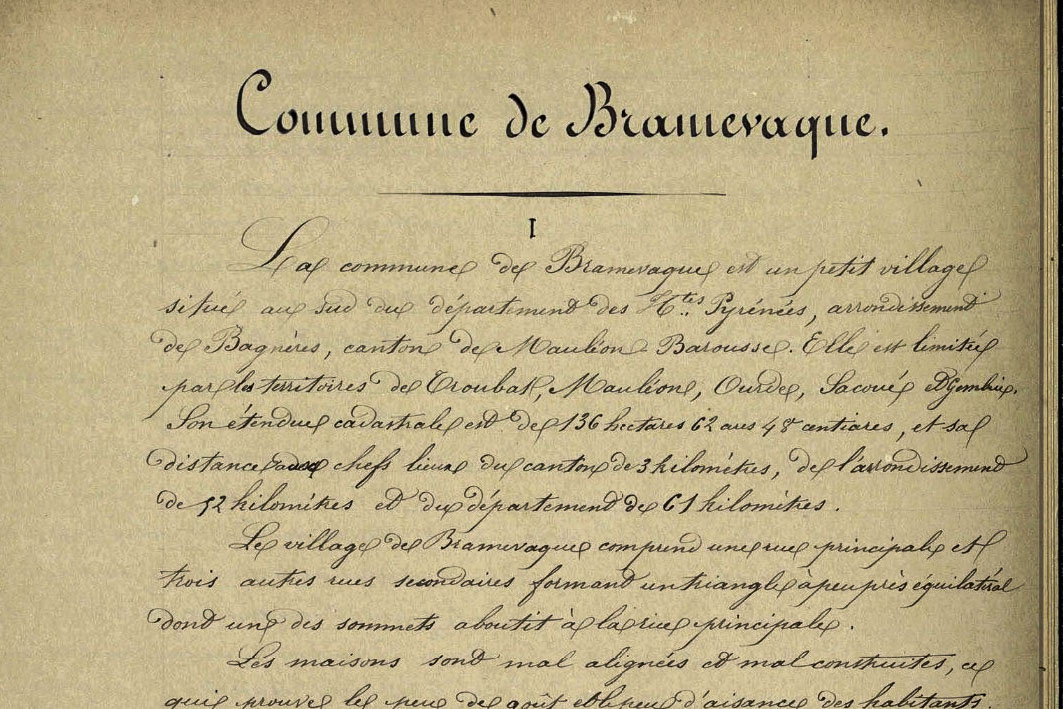 Commune de Bramevaque.
I
La commune de Bramevaque est un petit village
situé au sud du département des Htes Pyrénées, arrondissement
de Bagnères, canton de Mauléon Barousse. Elle est limitée
par les territoires de Troubat, Mauléon, Ourde, Sacoué et Gembrie.
Son étendue cadastrale est de 136 hectares 62 ares 48 centiares, et sa
distance aux chefs lieux du canton de 3 kilomètres, de l'arrondissement
de 52 kilomètres et du département de 61 kilomètres.
Le village de Bramevaque comprend une rue principale et
trois autres rues secondaires formant un triangle à peu près équilatéral
dont un des sommets aboutit à la rue principale.
Les maisons sont mal alignées et mal construites, ce
qui prouve le peu de goût et le peu d'aisance des habitants.